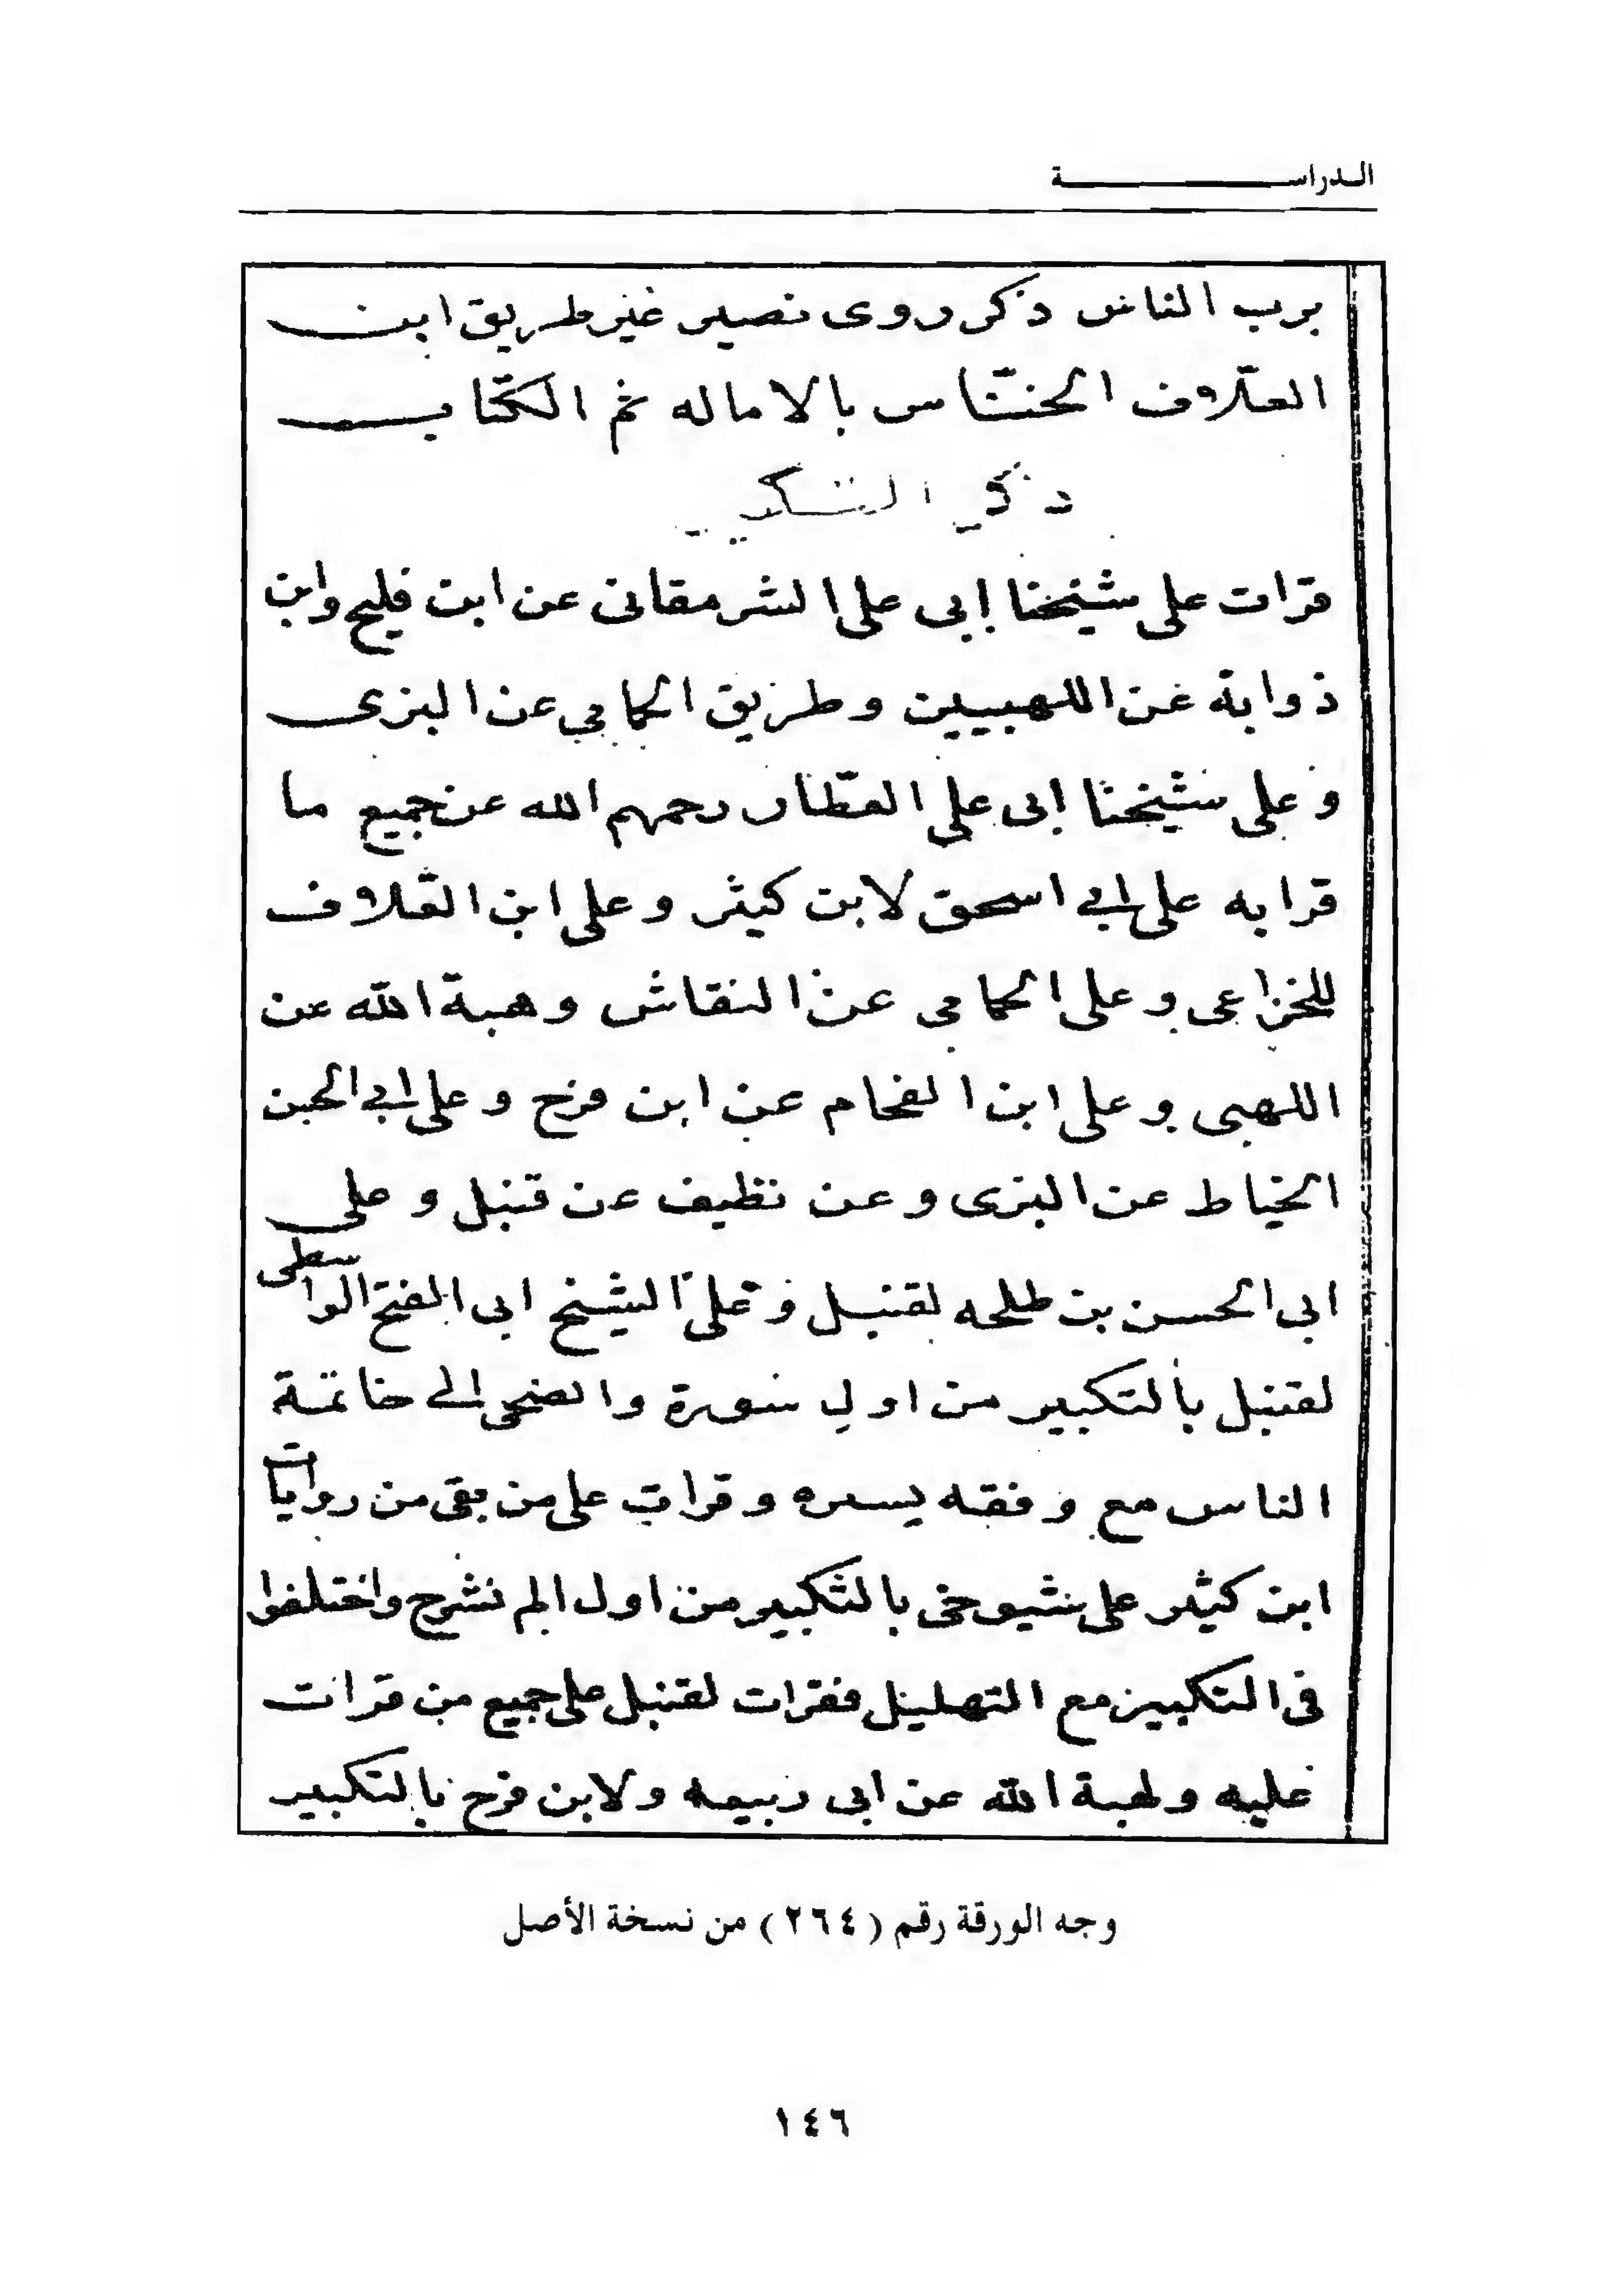 الدراســـــــة
برب الناس ذكر روى نصير غير طريق ابن
العلاف الخنّاس بالاماله ثم الكتاب
ذكر التكبير
قرات على شيخنا ابى على الشرمقانى عن ابن فليح وابن
ذوابة عن اللهبيين وطريق الحمامى عن البزى
وعلى شيخنا ابى على العطّار رحمهم الله عن جميع ما
قرا به على ابى اسحق لابن كثير وعلى ابن العلاف
للخزاعى وعلى الحمامى عن النقاش وهبة الله عن
اللهبى وعلى ابن الفحام عن ابن فرح وعلى ابى الحسن
الخياط عن البزى وعن نظيف عن قنبل وعلى
ابى الحسن بن طلحه لقنبل وعلى الشيخ ابى الفتح الواسطى
لقنبل بالتكبير من اول سورة والضحى الى خاتمة
الناس مع وقفه يسيره وقرات على من بقى من روايات
ابن كثير على شيوخى بالتكبير من اول الم نشرح واختلفوا
فى التكبير مع التهليل فقرات لقنبل على جميع من قرات
عليه ولهبة الله عن ابى ربيعه ولابن فرح بالتكبير
وجه الورقة رقم (٢٦٤) من نسخة الأصل
١٤٦